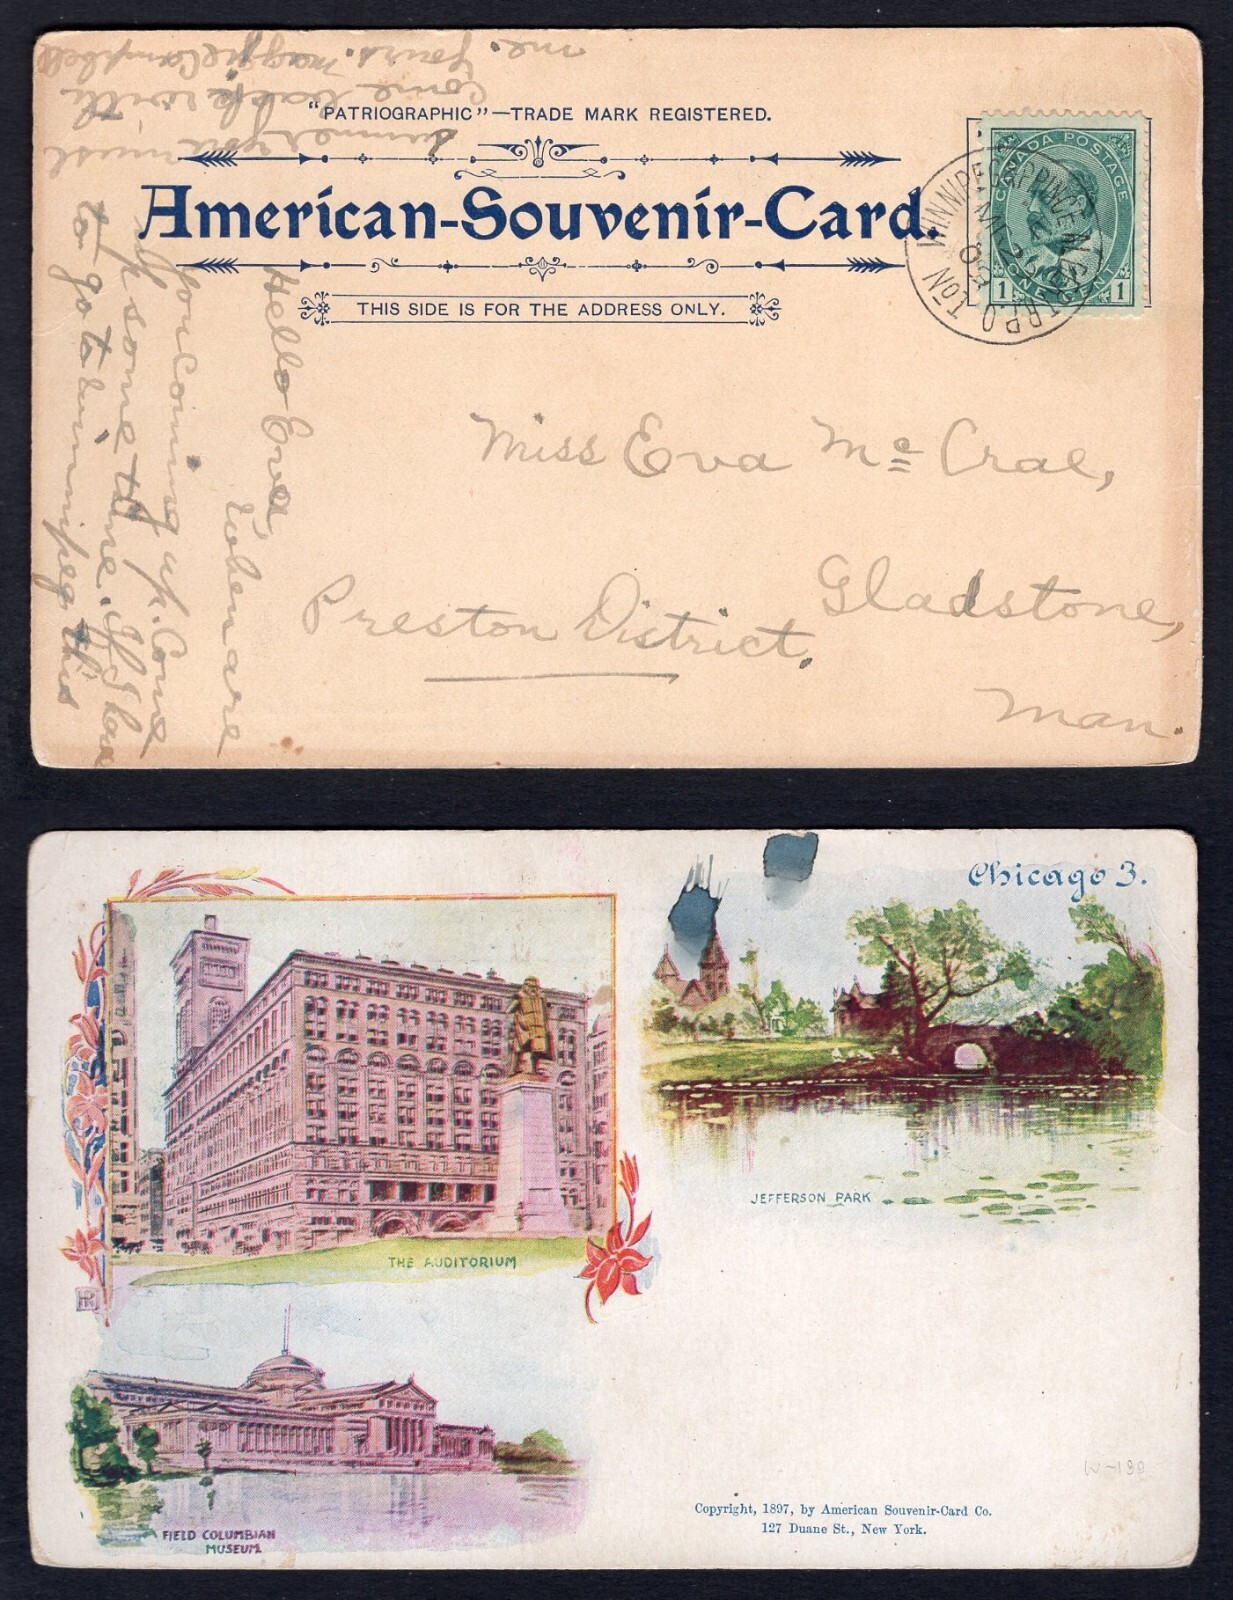 "PATRIOGRAPHIC"—TRADE MARK REGISTERED.
American-Souvenir-Card.
THIS SIDE IS FOR THE ADDRESS ONLY.
CANADA POSTAGE
1 ONE CENT 1
WINNIPEG
R.P.O.
Miss Eva Mc Crae,
Gladstone,
Preston District.
Man.
Hello Eva,
when are
you coming up. Come
up some time. If I have
to go to winnipeg this
summer you must
come back with
me.
yours. Maggie Campbell
Chicago 3.
THE AUDITORIUM
JEFFERSON PARK
FIELD COLUMBIAN
MUSEUM.
W-130
Copyright, 1897, by American Souvenir-Card Co.
127 Duane St., New York.